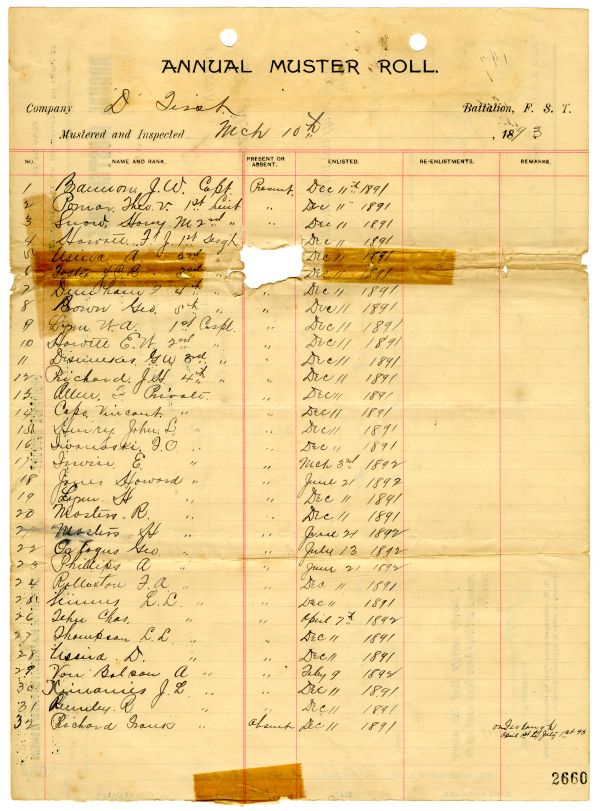 ANNUAL MUSTER ROLL.
Company D First Battalion, F. S. T.
Mustered and Inspected Mch 10th, 1893
NO. NAME AND RANK. PRESENT OR ABSENT. ENLISTED. RE-ENLISTMENTS. REMARKS.
1 J.W. Capt. Present. Dec 11th 1891
2 Theo. V. 1st Lieut " Dec 11 1891
3 Snow, M 2nd " " Dec 11 1891
4 Howatt F. J. 1st Sergt Dec 11 1891
5 Usina A. 2nd " Dec 11 1891
6 Foster J.C.B. Dec 11 1891
7 Dunham F. 4th " " Dec 11 1891
8 Bown Geo. 5th " " Dec 11 1891
9 Lynn W.A. 1st Corpl. " Dec 11 1891
10 Howitt E.W. 2nd " " Dec 11 1891
11 G.W. 3rd " " Dec 11 1891
12 Richard, J.H. 4th " " Dec 11 1891
13 Allen, F. Private " Dec 11 1891
14 Capo Vincent. " " Dec 11 1891
15 Henry John L. " " Dec 11 1891
16 Iwanoski F.O. " " Dec 11 1891
17 Irwin E. " " Mch 3rd 1892
18 Jones Howard " " June 21 1892
19 Lynn H " " Dec 11 1891
20 Masters R. " " Dec 11 1891
21 Masters H " " June 21 1892
22 Geo " " July 13 1892
23 Phillips A " " June 21 1892
24 Rolleston F. A " " Dec 11 1891
25 L. C. " " Dec 11 1891
26 Chas. " " April 7th 1892
27 Thompson L.L. " " Dec 11 1891
28 Usina D. " " Dec 11 1891
29 Von Balson A " " Feby 9 1892
30 J. L. " " Dec 11 1891
31 R " " Dec 11 1891
32 Richard Frank " Absent Dec 11 1891 on Furlough
April 1st to July 1st 93
2660